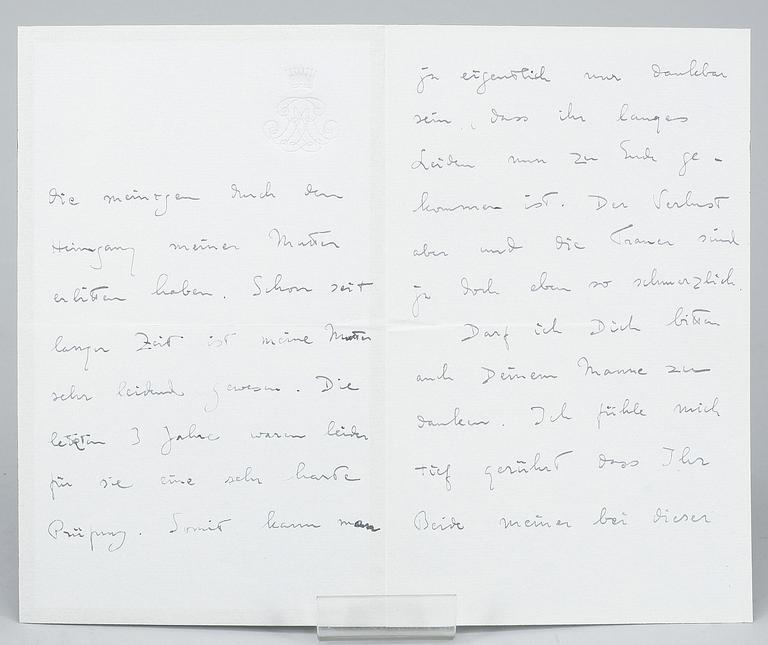 die meinigen durch den
Heimgang meiner Mutter
erlitten haben. Schon seit
langer Zeit ist meine Mutter
sehr leidend gewesen. Die
letzten 3 Jahre waren leider
für sie eine sehr harte
Prüfung. Somit kann man
ja eigentlich nur dankbar
sein, dass ihr langes
Leiden nun zu Ende ge-
kommen ist. Der Verlust
aber und die Trauer sind
ja doch eben so schmerzlich.
Darf ich Dich bitten
auch Deinem Manne zu
danken. Ich fühle mich
tief gerührt dass Ihr
Beide meiner bei dieser